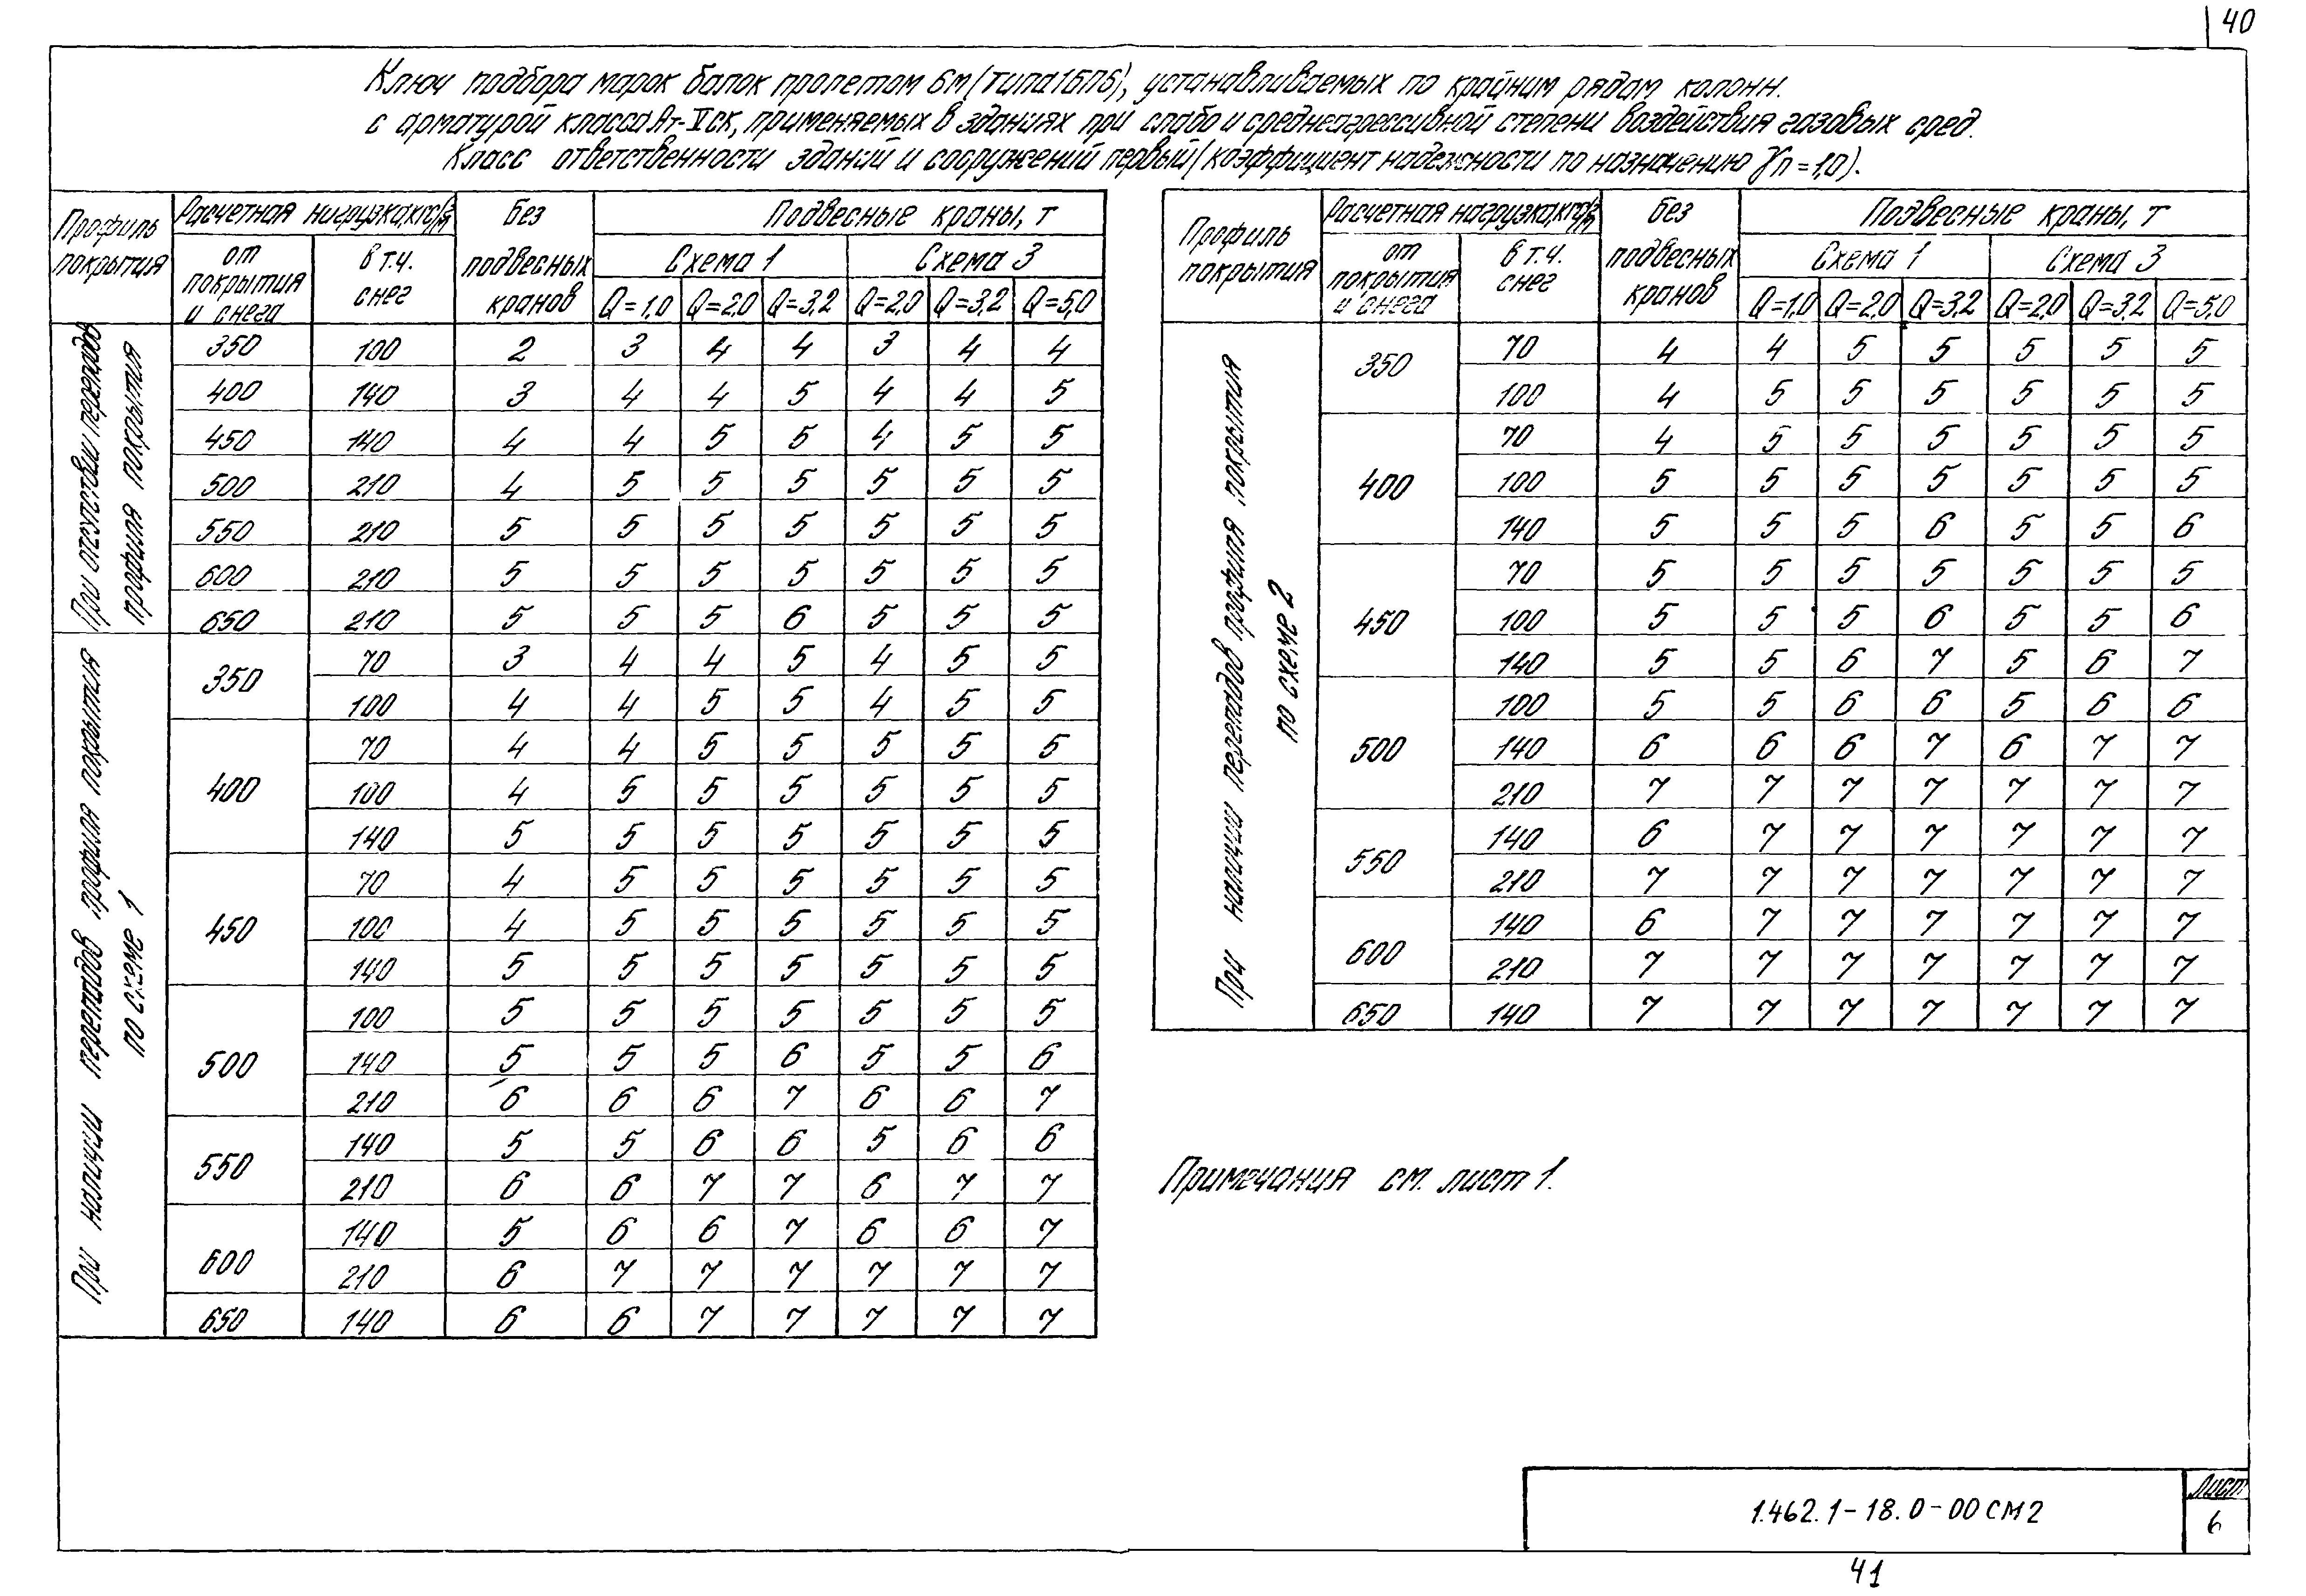 40
Ключ подбора марок балок пролетом 6м (типа 1БП6), устанавливаемых по крайним рядам колонн.
с арматурой класса Ат-Vск, применяемых в зданиях при слабо и среднеагрессивной степени воздействия газовых сред.
Класс ответственности зданий и сооружений первый (коэффициент надежности по назначению γп = 1,0).
Профиль покрытия | Расчетная нагрузка, кгс/м² | Без подвесных кранов | Подвесные краны, т
от покрытия и снега | в т.ч. снег | Схема 1 | Схема 3
Q=1,0 Q=2,0 Q=3,2 Q=2,0 Q=3,2 Q=5,0
При отсутствии перепадов профиля покрытия
350 100 2 3 4 4 3 4 4
400 140 3 4 4 5 4 4 5
450 140 4 4 5 5 4 5 5
500 210 4 5 5 5 5 5 5
550 210 5 5 5 5 5 5 5
600 210 5 5 5 5 5 5 5
650 210 5 5 5 6 5 5 5
При наличии перепадов профиля покрытия по схеме 1
350 70 3 4 4 5 4 5 5
100 4 4 5 5 4 5 5
400 70 4 4 5 5 5 5 5
100 4 5 5 5 5 5 5
140 5 5 5 5 5 5 5
450 70 4 5 5 5 5 5 5
100 4 5 5 5 5 5 5
140 5 5 5 5 5 5 5
500 100 5 5 5 5 5 5 5
140 5 5 5 6 5 5 6
210 6 6 6 7 6 6 7
550 140 5 5 6 6 5 6 6
210 6 6 7 7 6 7 7
600 140 5 6 6 7 6 6 7
210 6 7 7 7 7 7 7
650 140 6 6 7 7 7 7 7
Профиль покрытия | Расчетная нагрузка, кгс/м² | Без подвесных кранов | Подвесные краны, т
от покрытия и снега | в т.ч. снег | Схема 1 | Схема 3
Q=1,0 Q=2,0 Q=3,2 Q=2,0 Q=3,2 Q=5,0
При наличии перепадов профиля покрытия по схеме 2
350 70 4 4 5 5 5 5 5
100 4 5 5 5 5 5 5
400 70 4 5 5 5 5 5 5
100 5 5 5 5 5 5 5
140 5 5 5 6 5 5 6
450 70 5 5 5 5 5 5 5
100 5 5 5 6 5 5 6
140 5 5 6 7 5 6 7
500 100 5 5 6 6 5 6 6
140 6 6 6 7 6 7 7
210 7 7 7 7 7 7 7
550 140 6 7 7 7 7 7 7
210 7 7 7 7 7 7 7
600 140 6 7 7 7 7 7 7
210 7 7 7 7 7 7 7
650 140 7 7 7 7 7 7 7
Примечания см. лист 1.
1.462.1-18.0-00СМ2
Лист
6
41